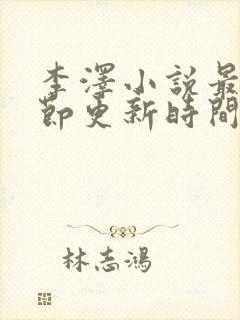 李澤小說最
節更新時間
林志鴻